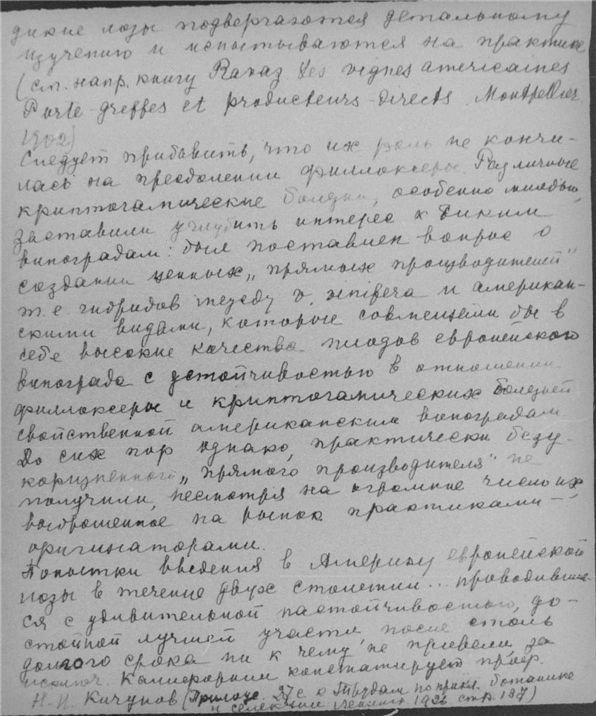 дикие лозы подвергаются детальному
изучению и испытываются на практике
(см. напр. книгу Ravaz. Les vignes americaines
Porte-greffes et producteurs-directs. Montpellier
1902)
Следует прибавить, что их роль не кончи-
лась на преодолении филлоксеры. Различные
криптогамические болезни, особенно мильдью,
заставили углубить интерес к диким
виноградам: был поставлен вопрос о
создании ценных „прямых производителей"
т.е. гибридов между v. vinifera и американ-
скими видами, которые совмещали бы в
себе высокие качества плодов европейского
винограда с устойчивостью в отношении
филлоксеры и криптогамических болезней
свойственной американским виноградам.
До сих пор однако, практически безу-
коризненного „прямого производителя" не
получили, несмотря на огромное число их
выброшенное на рынок практиками-
оригинаторами.
Попытки введения в Америку европейской
лозы в течение двух столетий... проводившие-
ся с удивительной настойчивостью, до-
стойной лучшей участи после столь
долгого срока ни к чему не привели, за
исключ. Калифорнии констатирует проф.
Н.И. Кичунов (Прилож. 27 с к Трудам по прикл. ботанике
и селекции Ленингр. 1926 стр. 197)